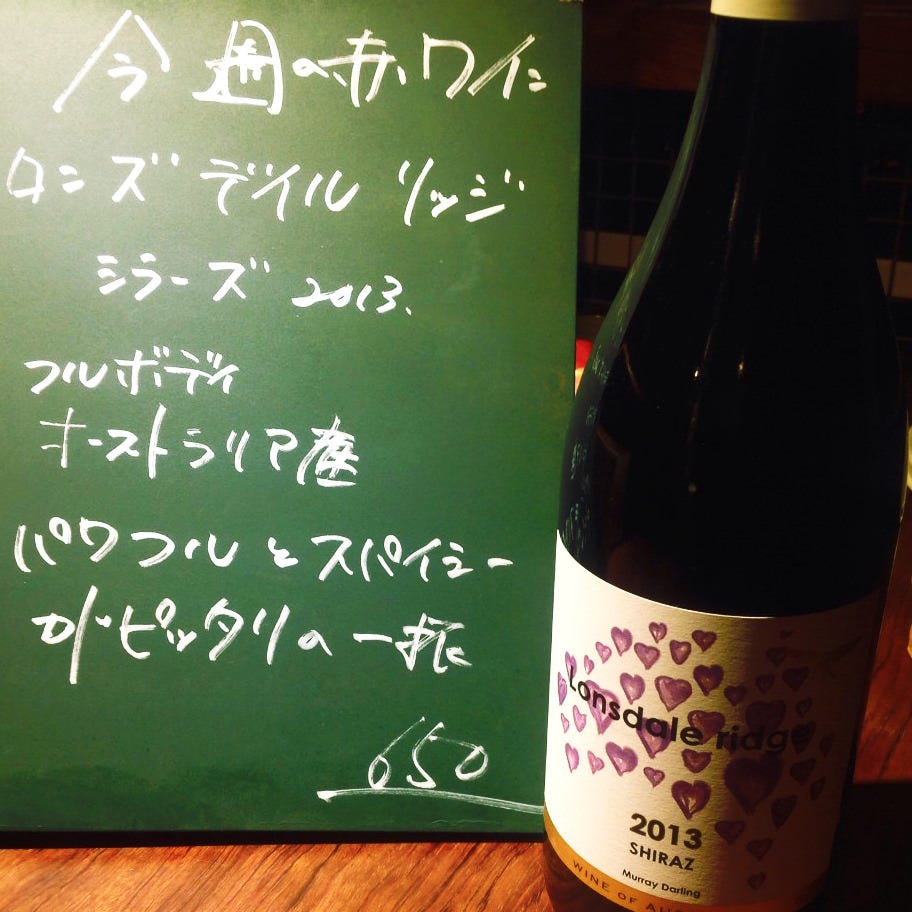 今週の赤ワイン
ロンズデイルリッジ
シラーズ 2013.
フルボディ
オーストラリア産
パワフルとスパイシー
がピッタリの一振
650
Lonsdale ridge
2013
SHIRAZ
Murray Darling
WINE OF AU